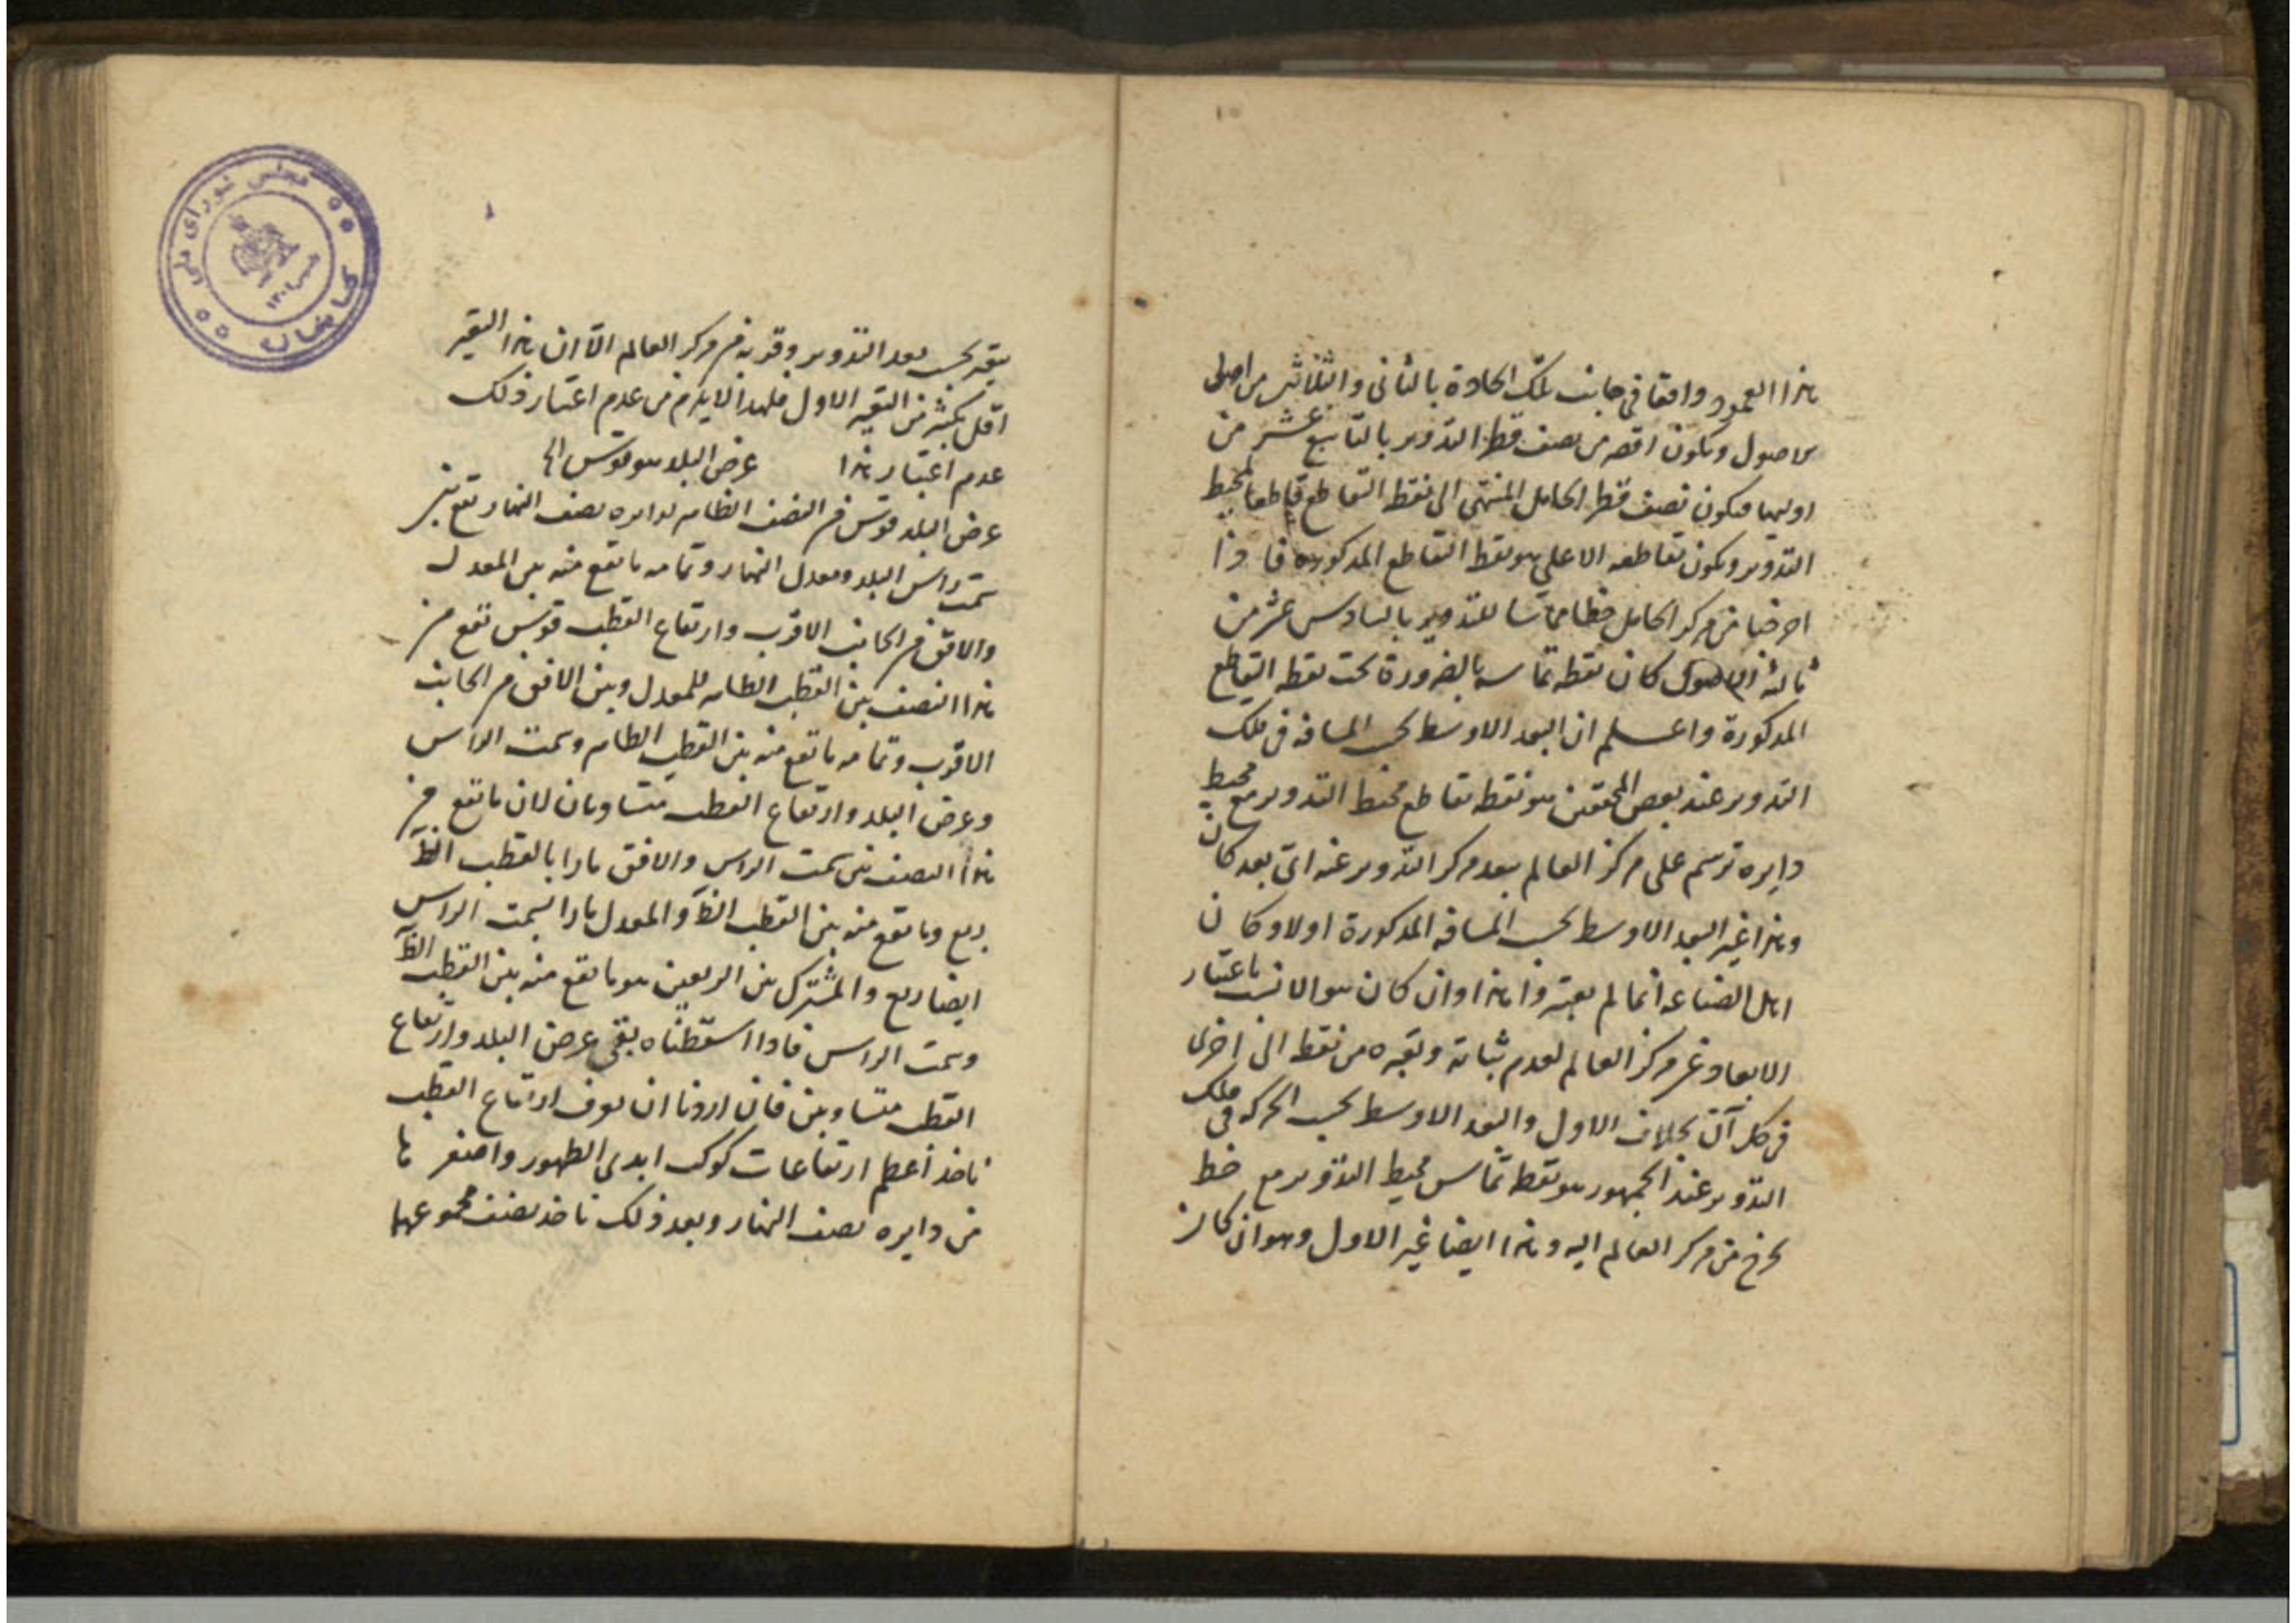 هذا العمود واقعا في جانب تلك الحادة بالثاني والثلاثين من اصول
الاصول ويكون اقصر من نصف قطر التدوير بالتاسع عشر من
اوليها فيكون نصف قطر الحامل المنتهى الى نقطة التقاطع قاطعا لمحيط
التدوير ويكون تقاطعه الاعلى هو نقطة التقاطع المذكورة فاذا
اخرجنا من مركز الحامل خطا مماسا للتدوير بالسادس عشر من
ثالثة الاصول كان نقطة تماسه بالضرورة تحت نقطة التقاطع
المذكورة واعلم ان البعد الاوسط بحسب المسافة في فلك
التدوير عند بعض المحققين هو نقطة تقاطع محيط التدوير مع محيط
دايرة ترسم على مركز العالم ببعد مركز التدوير عنه اى بعد كان
وهذا غير البعد الاوسط بحسب المسافة المذكورة اولا وكان
اهل الصناعة انما لم يعتبروا هذا وان كان هو الانسب باعتبار
الابعاد عن مركز العالم لعدم ثباته وتغيره من نقطة الى اخرى
في كل آن بخلاف الاول والبعد الاوسط بحسب الحركة في فلك
التدوير عند الجمهور هو نقطة تماس محيط التدوير مع خط
يخرج من مركز العالم اليه وهذا ايضا غير الاول وهو ان كان
يتغير بحسب بعد التدوير وقربه من مركز العالم الا ان هذا التغير
اقل بكثير من التغير الاول فلهذا لا يلزم من عدم اعتبار ذلك
عدم اعتبار هذا عرض البلد هو قوس الخ
عرض البلد قوس من النصف الظاهر لدايره نصف النهار تقع بين
سمت راس البلد ومعدل النهار وتمامه ما تقع منه بين المعدل
والافق من الجانب الاقرب وارتفاع القطب قوس تقع من
هذا النصف بين القطب الظاهر للمعدل وبين الافق من الجانب
الاقرب وتمامه ما تقع منه بين القطب الظاهر وسمت الراس
وعرض البلد وارتفاع القطب متساويان لان ما تقع من
هذا النصف بين سمت الراس والافق مارا بالقطب الظ
ربع وما تقع منه بين القطب الظ والمعدل مارا بسمت الراس
ايضا ربع والمشترك بين الربعين هو ما تقع منه بين القطب الظ
وسمت الراس فاذا اسقطناه بقى عرض البلد وارتفاع
القطب متساويين فان اردنا ان نعرف ارتفاع القطب
ناخذ اعظم ارتفاعات كوكب ابدى الظهور واصغرها
من دايره نصف النهار وبعد ذلك ناخذ نصف مجموعهما
مجلس شورای ملی
کتابخانه